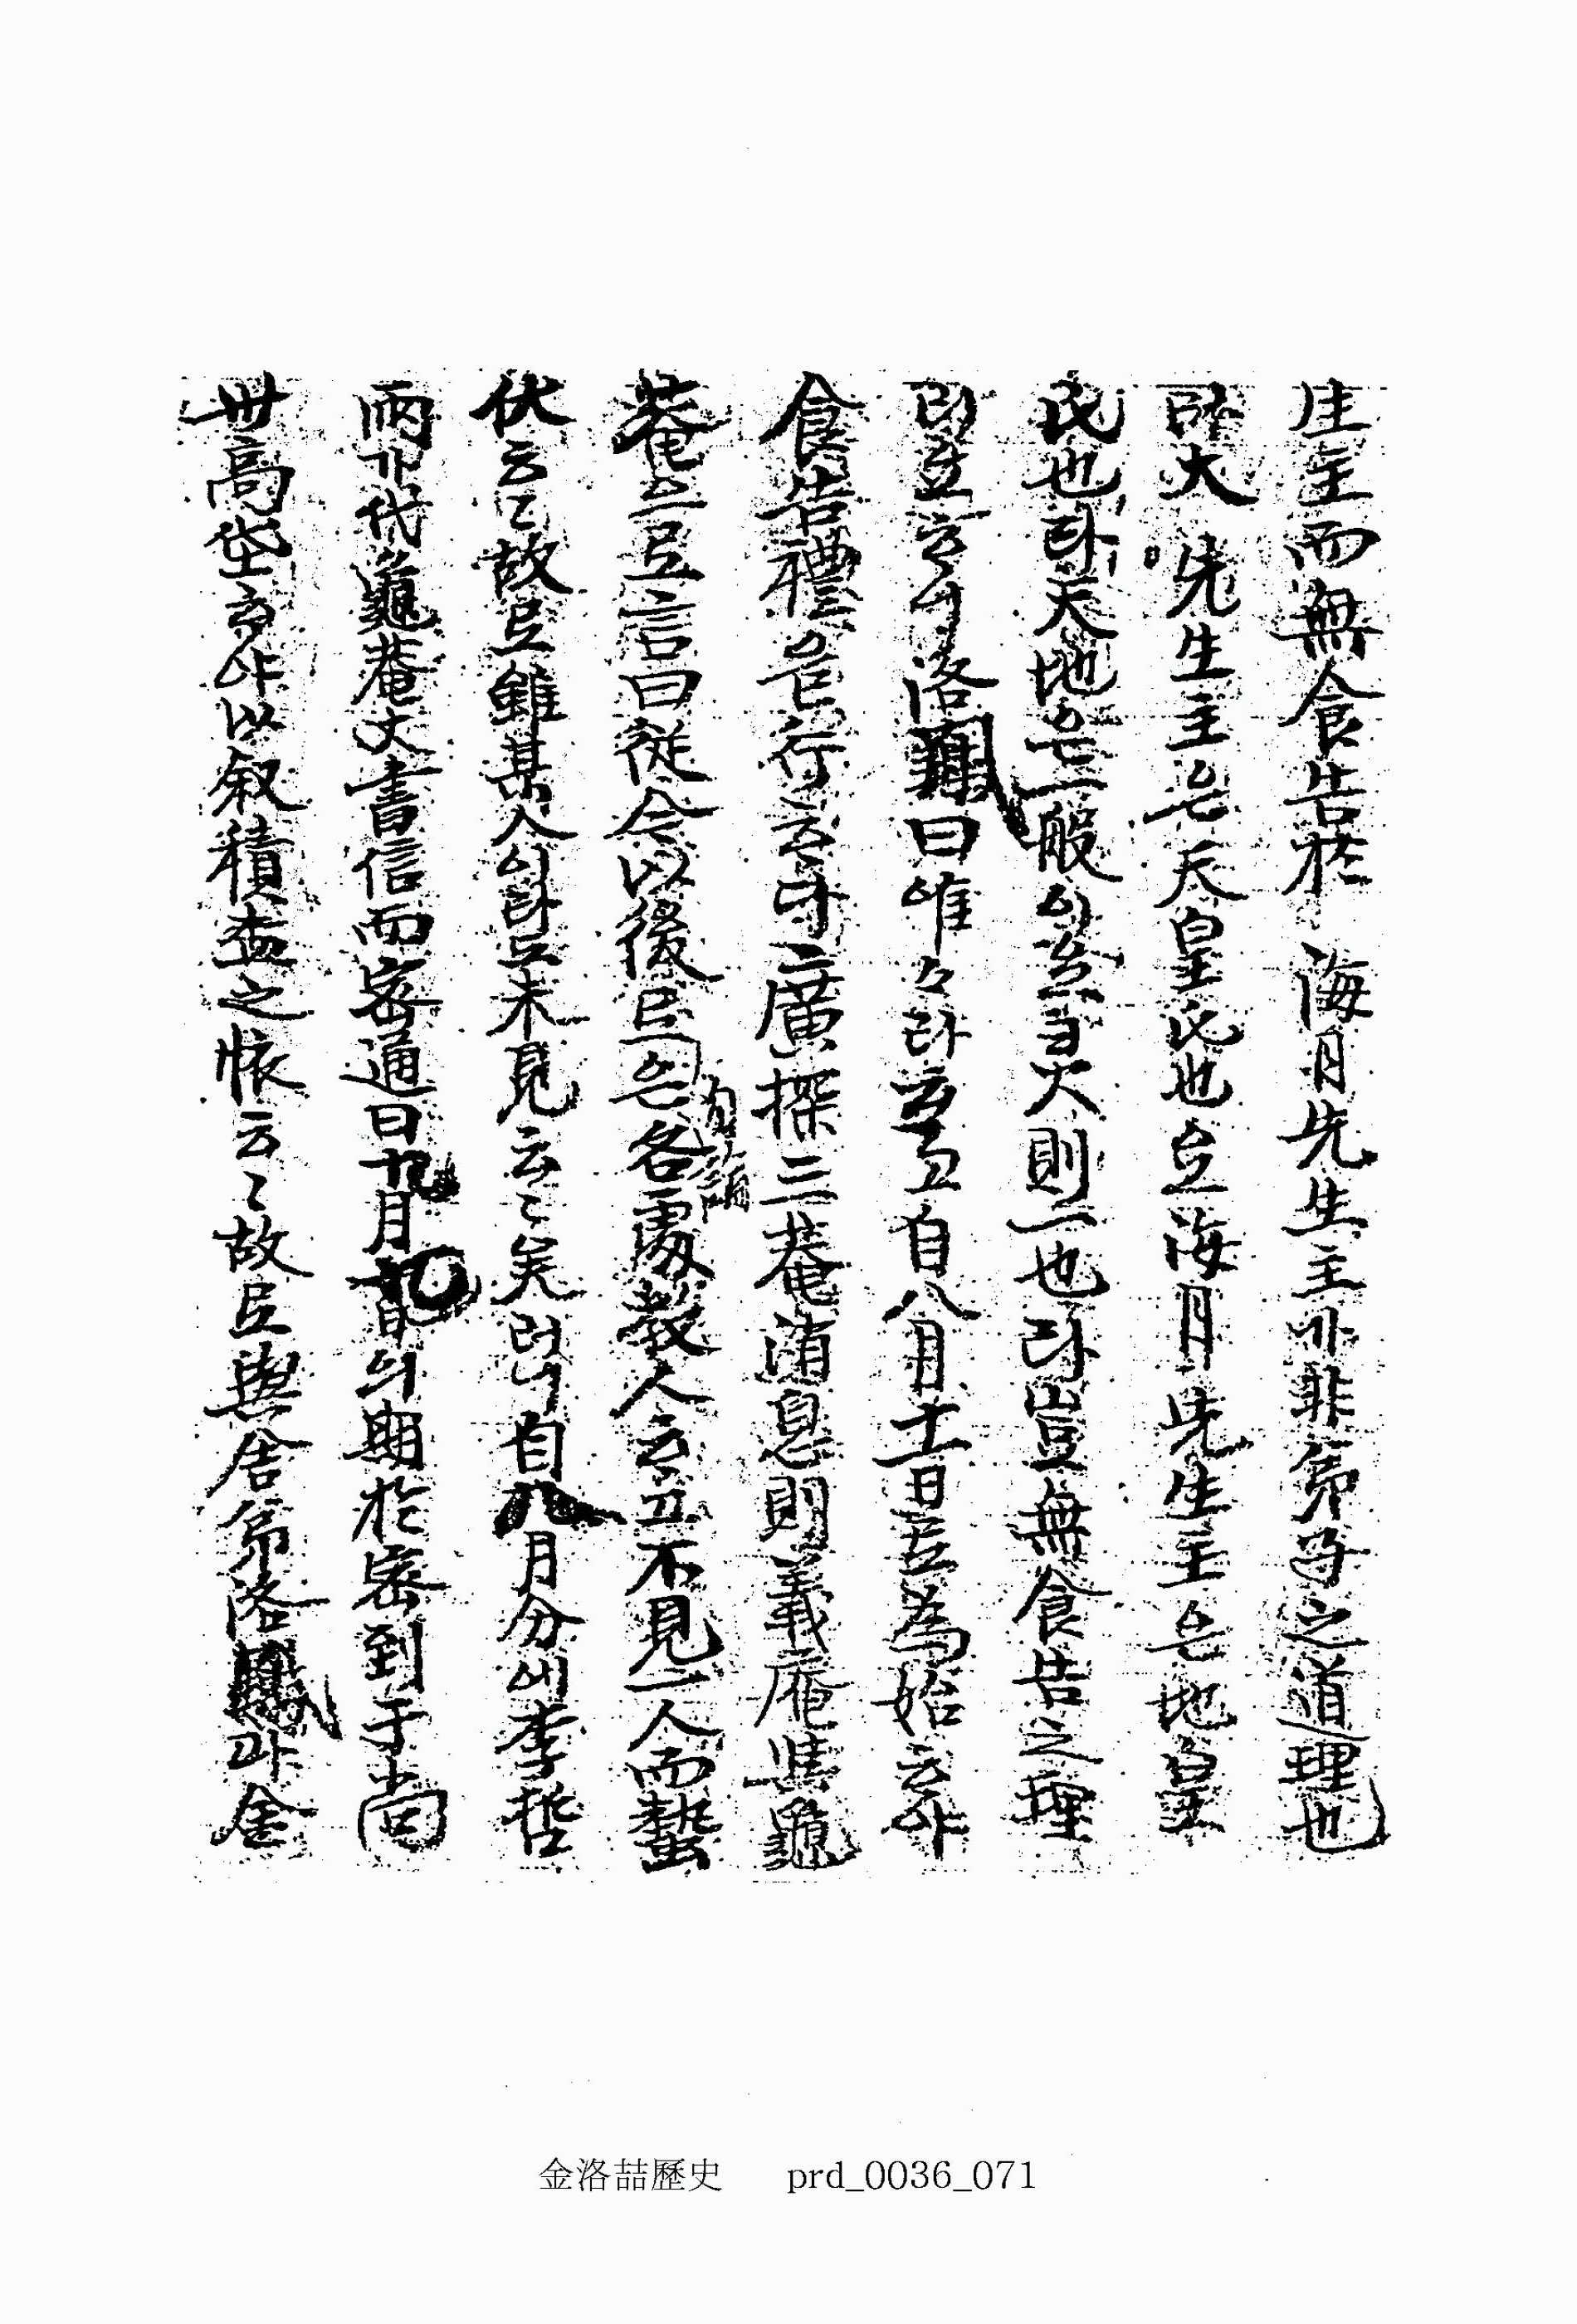 生主而無食告於 海月先生主가非弟子之道理也
師大 先生主은天皇氏也요海月先生主은地皇
氏也라天地은一般이요水火則一也라豈無食告之理
리요하니洛鳳曰唯々라하고自八月十一日노為始하야
食告禮을行하며廣探三菴消息則義庵與龜
菴으로言曰從今以後로은各處敎人하고不見一人而蟄
有謫
伏云々故로雖某人이라도未見云々矣러니自八月分에李哲
雨가代龜菴丈書信而密通曰九月 日의期於密到于尚
州高垈하야以叙積查之懷云々故로與舍弟洛鳳과金
金洛喆歷史 prd_0036_071